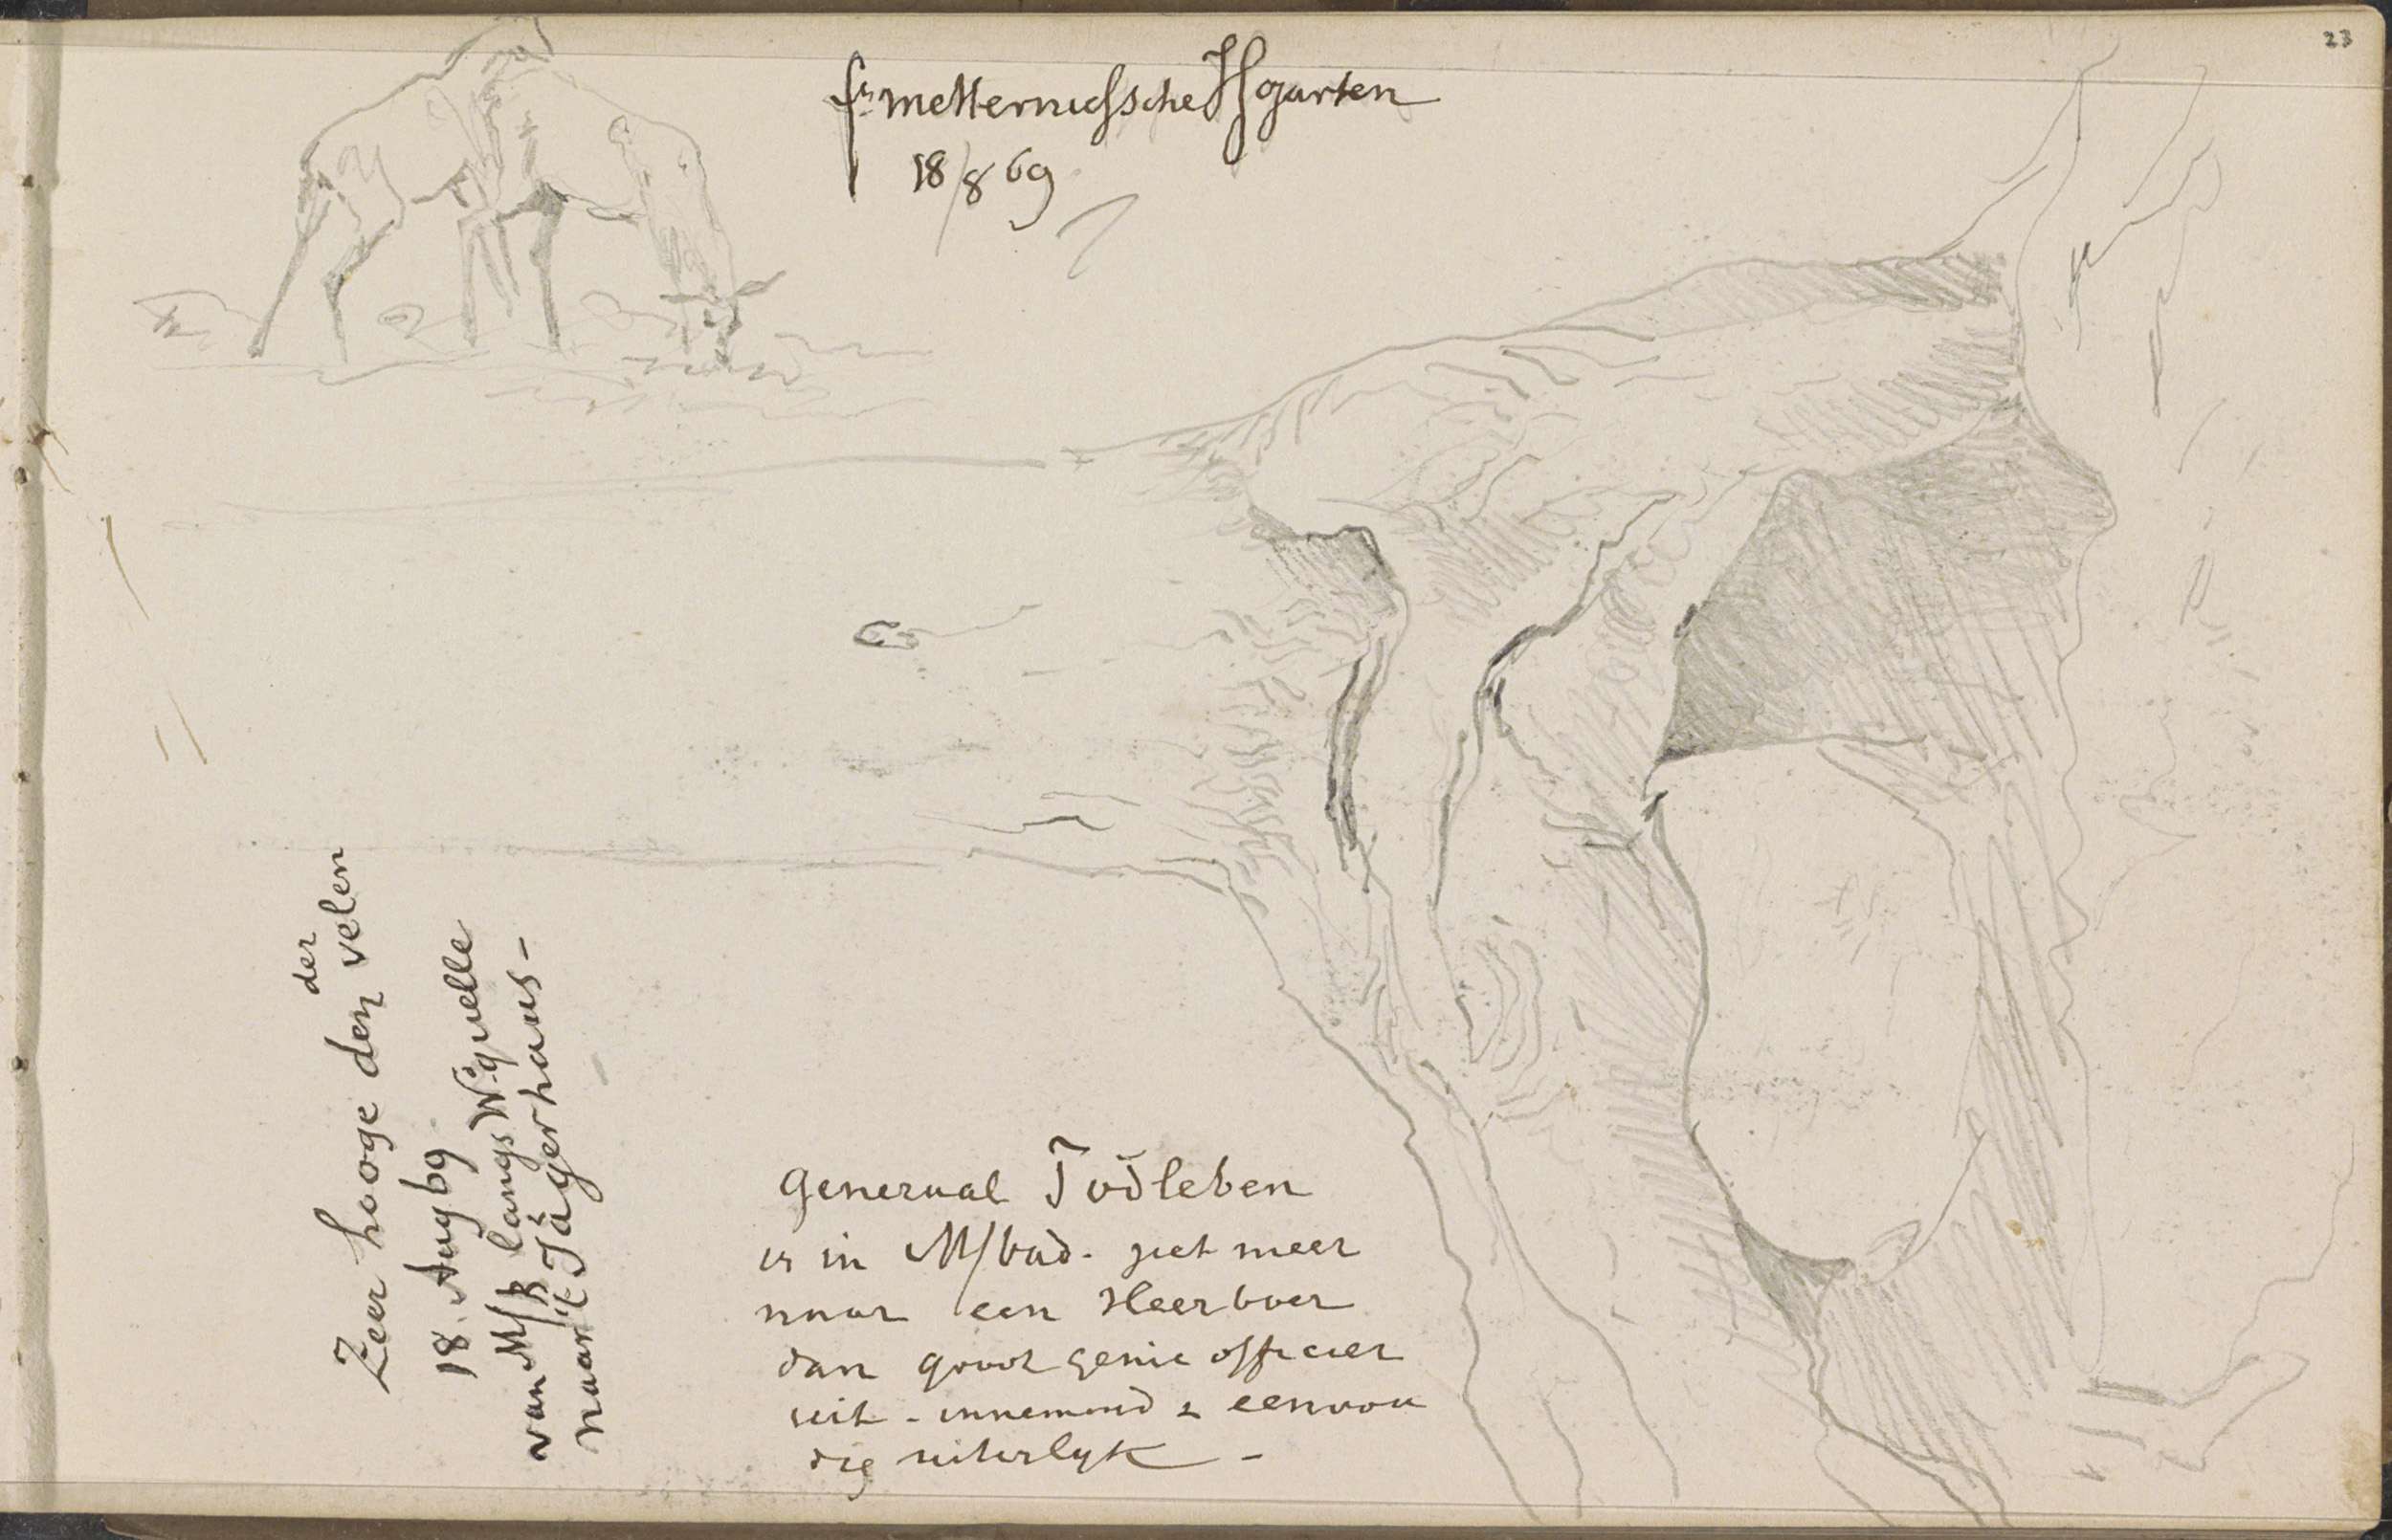 23
metternichsche Hgarten
18/8 69
Zeer hooge den velen
der
18. Aug 69
van M/B langs W.quelle
naar 't Jägerhaus -
Generaal Todleben
is in M/bad. ziet meer
naar een Heerboer
dan groot genie officier
uit - innemend & eenvou
dig uiterlyk -